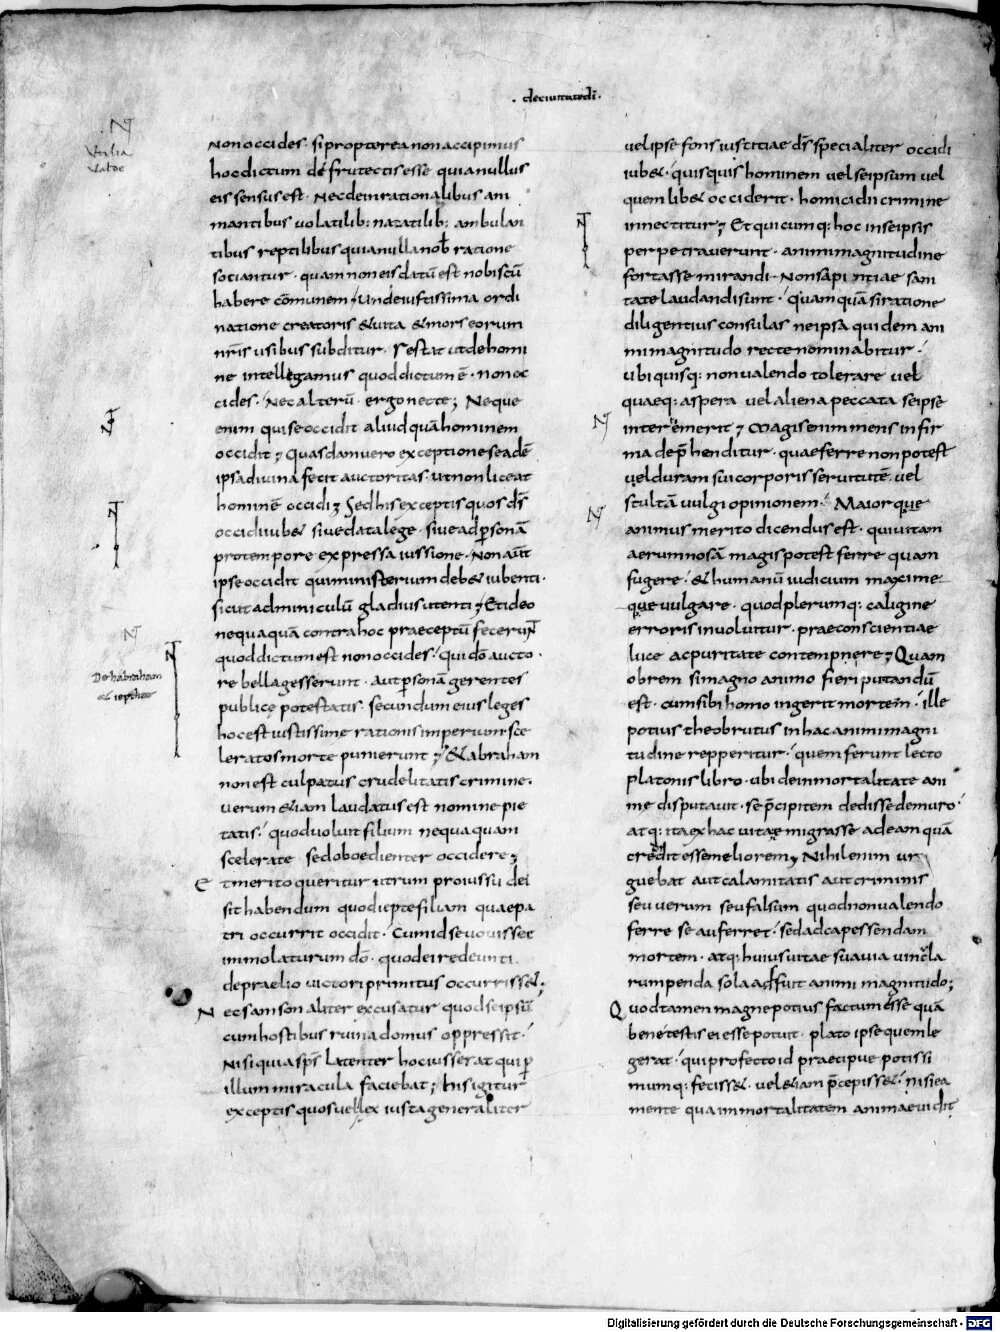 · deciuitatedi ·
Utilia
Uatae
Non occides. si propterea non accipimus
hoc dictum de frutectis esse quia nullus
eis sensus est. Nec de inrationalibus ani
mantibus uolatilib: natatilib: ambulan
tibus reptilibus quia nulla nob ratione
sociantur. quam non eis datū est nobiscū
habere cōmunem. unde iustissima ordi
natione creatoris & uita & mors eorum
nr̄is usibus subditur. restat ut de homi
ne intellegamus quod dictum ē. non oc
cides. Nec alterū ergo nec te; Neque
enim qui se occidit aliud quā hominem
occidit; Quasdam uero exceptiones eadē
ipsa diuina fecit auctoritas. ut non liceat
hominē occidi; Sed his exceptis quos ds̄
occidi iub&. siue data lege. siue ad p̱sonā
pro tempore expressa iussione. Non aūt
ipse occidit qui ministerium deb& iubenti.
sicut adminiculū gladius utenti; Et ideo
nequaquā contra hoc praeceptū fecerunt
quod dictum est non occides. qui dō aucto
re bella gesserunt. aut p̱sonā gerentes
publicę potestatis. secundum eius leges
hoc est iustissime rationis imperium. sce
leratos morte punierunt; & abraham
De habraham
& iepthae
non est culpatus crudelitatis crimine.
uerum &iam laudatus est nomine pie
tatis. quod uoluit filium nequaquam
scelerate sed oboedienter occidere;
Et merito queritur utrum pro iussu dei
sit habendum quod iepte filiam quae pa
tri occurrit occidit. Cum id se uouisset
immolaturum dō. quod ei redeunti
de praelio uictori primitus occurriss&;
Nec samson aliter excusatur quod seipsū
cum hostibus ruina domus oppressit.
Nisi quia sps̄ latenter hoc iusserat qui p̱
illum miracula faciebat; his igitur
exceptis quos uel lex iusta generaliter
uel ipse fons iustitiae ds̄ specialiter occidi
iub&. quisquis hominem uel seipsum uel
quemlib& occiderit. homicidii crimine
innectitur; Et quicumq: hoc in seipsis
perpetrauerunt. animi magnitudine
fortasse mirandi. Non sapientiae sani
tate laudandi sunt. quamquā si ratione
diligentius consulas ne ipsa quidem ani
mi magnitudo recte nominabitur.
ubi quisq: non ualendo tolerare uel
quaeq: aspera uel aliena peccata seipse
interemerit; Magis enim mens infir
ma dep̄henditur. quae ferre non potest
uel duram sui corporis seruitutē. uel
stultā uulgi opinionem. Maiorque
animus merito dicendus est. qui uitam
aerumnosā magis potest ferre quam
fugere. & humanū iudicium maxime
que uulgare. quod plerumq: caligine
erroris inuoluitur. prae conscientiae
luce ac puritate contempnere; Quam
obrem si magno animo fieri putandū
est. cum sibi homo ingerit mortem. ille
potius theobrutus in hac animi magni
tudine repperitur. quem ferunt lecto
platonis libro. ubi de inmortalitate ani
mę disputauit. se p̄cipitem dedisse de muro.
atq: ita ex hac uita emigrasse ad eam quā
credit esse meliorem; Nihil enim ur
guebat aut calamitatis aut criminis
seu uerum seu falsum quod non ualendo
ferre se auferret. sed ad capessendam
mortem. atq: huius uitae suauia uincla
rumpenda sola adfuit animi magnitudo;
Quod tamen magne potius factum esse quā
bene testis ei esse potuit. plato ipse quem le
gerat. qui profecto id praecipue potissi
mumq: feciss&. uel &iam p̄cepiss&. nisi ea
mente qua inmortalitatem animae uidit
Digitalisierung gefördert durch die Deutsche Forschungsgemeinschaft - DFG